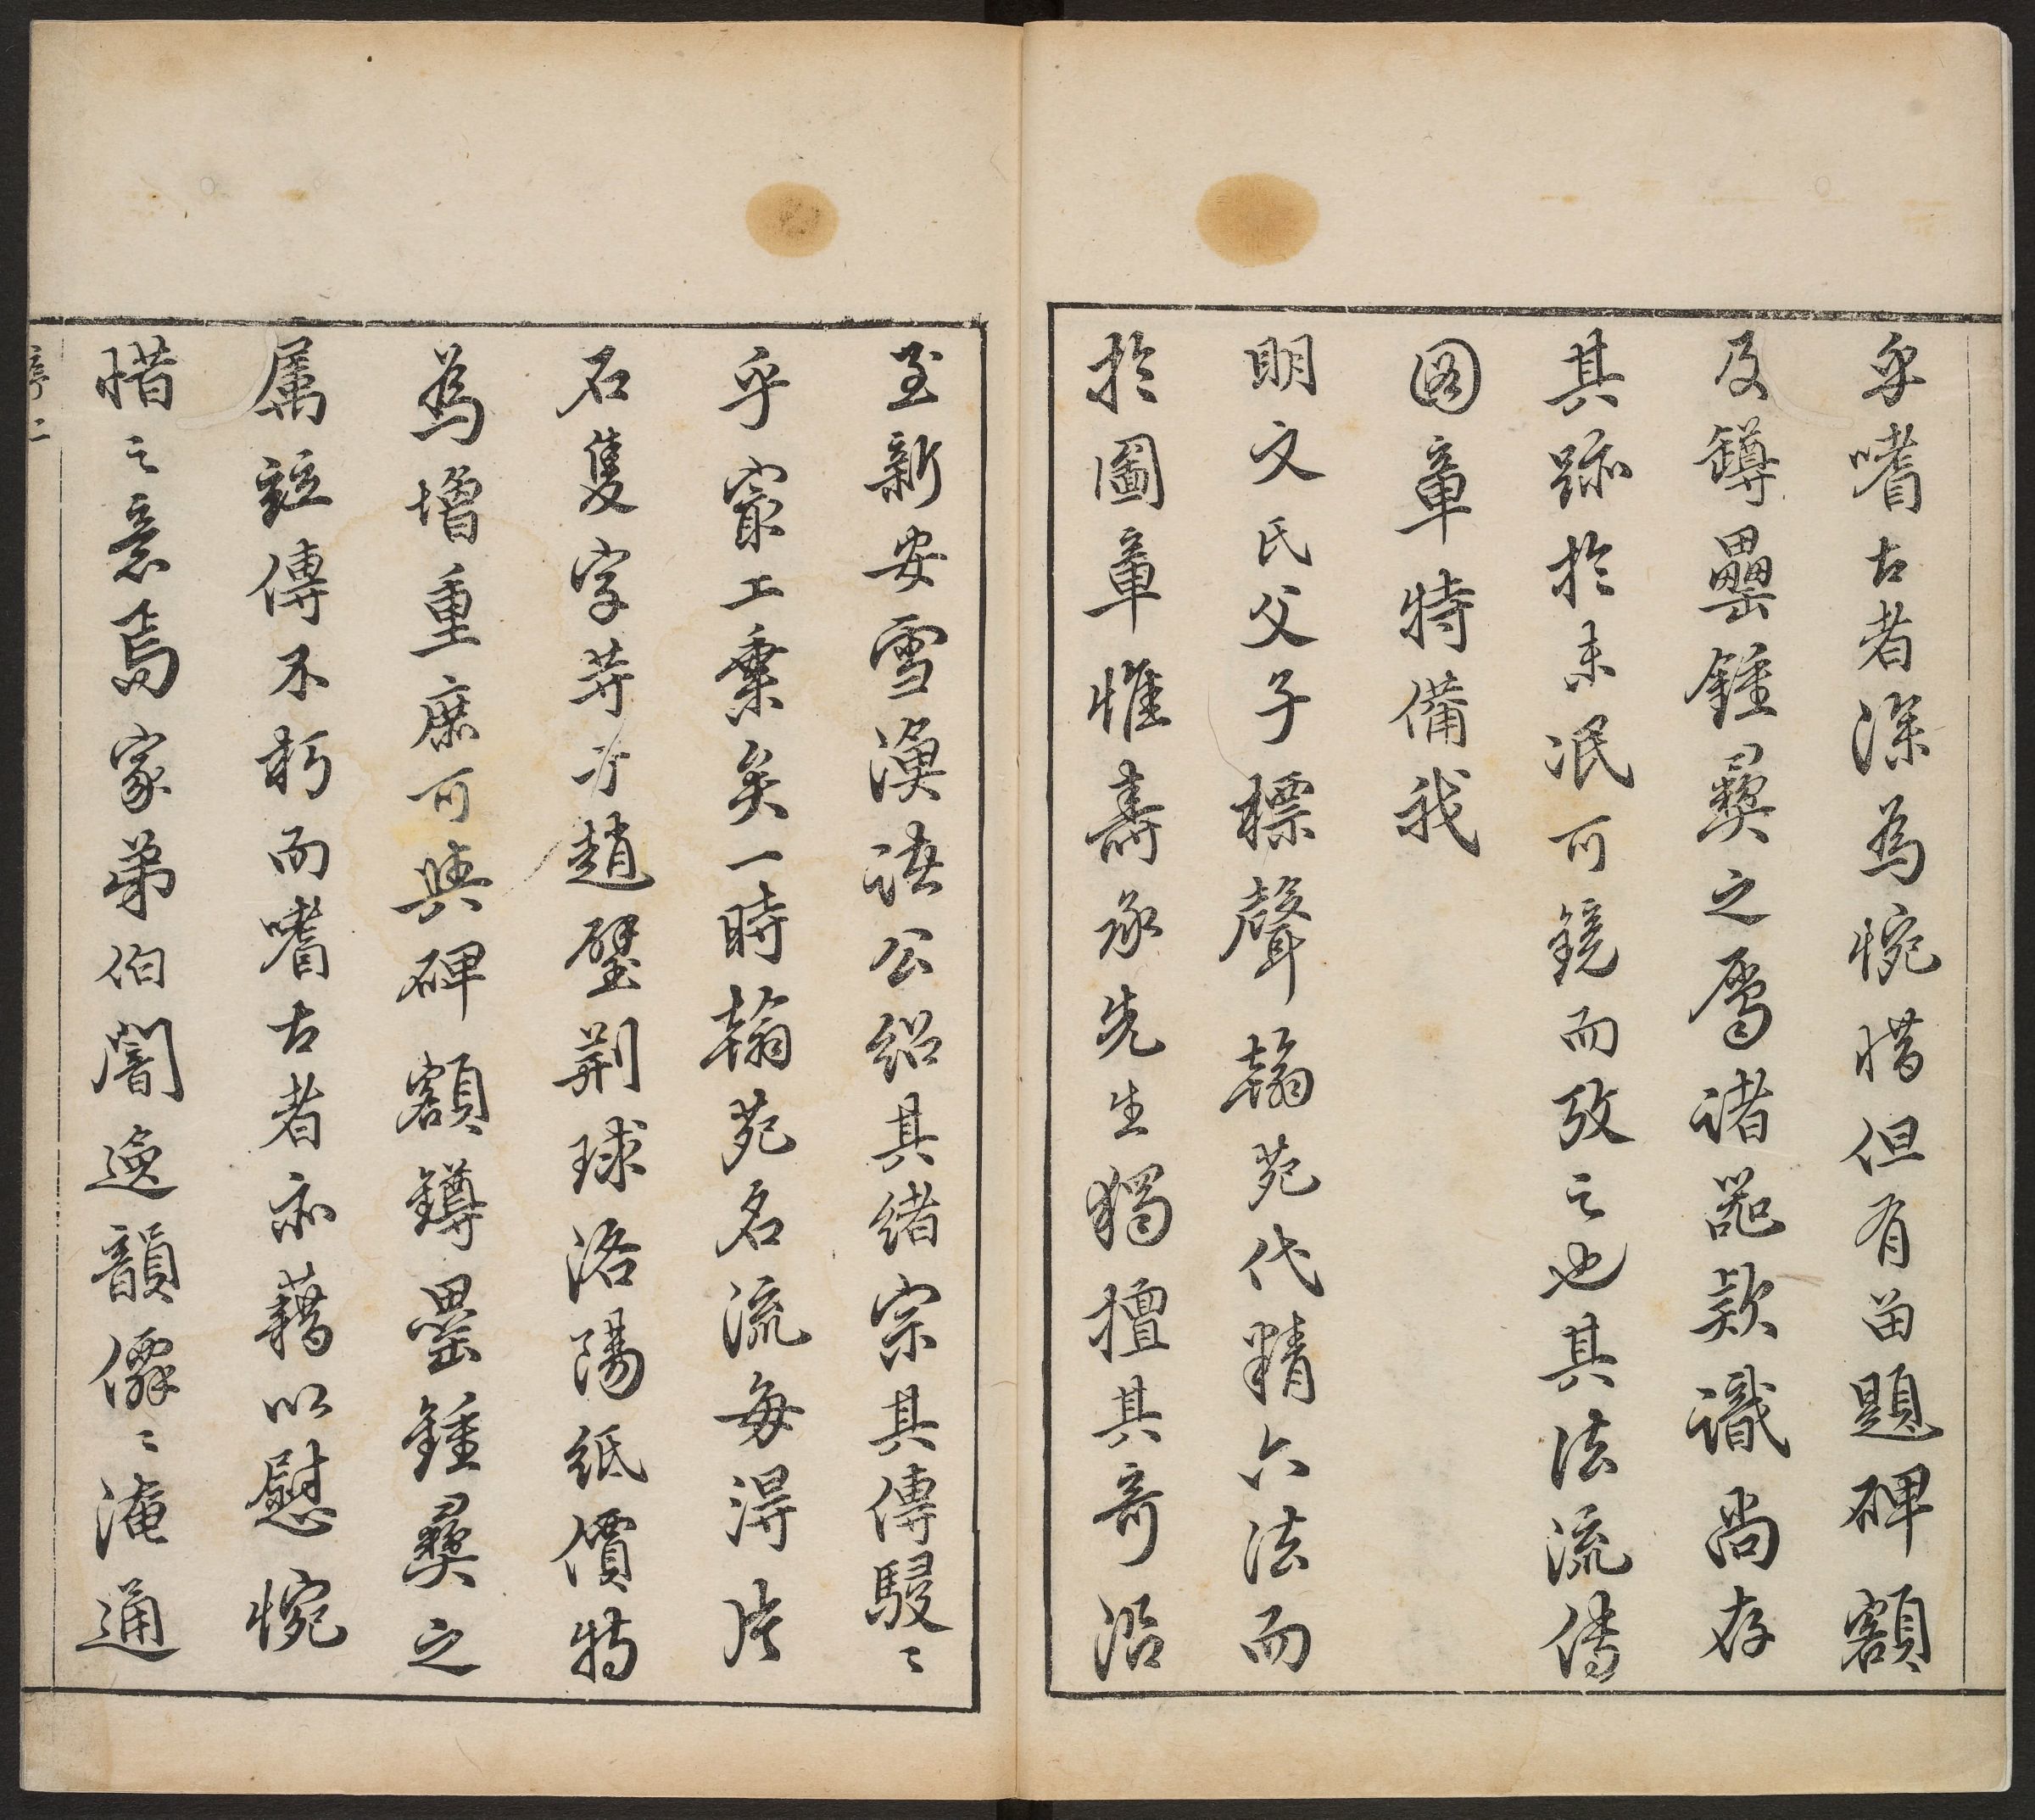 乎嗜古者深為惋惜但有留題碑額
及罇罍鍾彝之屬諸器款識尚存
其跡於未泯可鏡而攷之也其法流傳
图章特備我
明文氏父子標聲翰苑代精六法而
於圖章惟壽承先生獨擅其奇沿
至新安雪漁諸公紹其緒宗其傳駸〻
乎寔工棄矣一時翰苑名流每得片
石隻字莫方趙璧荆球洛陽紙價特
為增重庶可與碑額罇罍鍾彝之
属竝傳不朽而嗜古者亦藉以慰惋
惜之意焉家弟伯闇逸韻僊〻淹通
序二